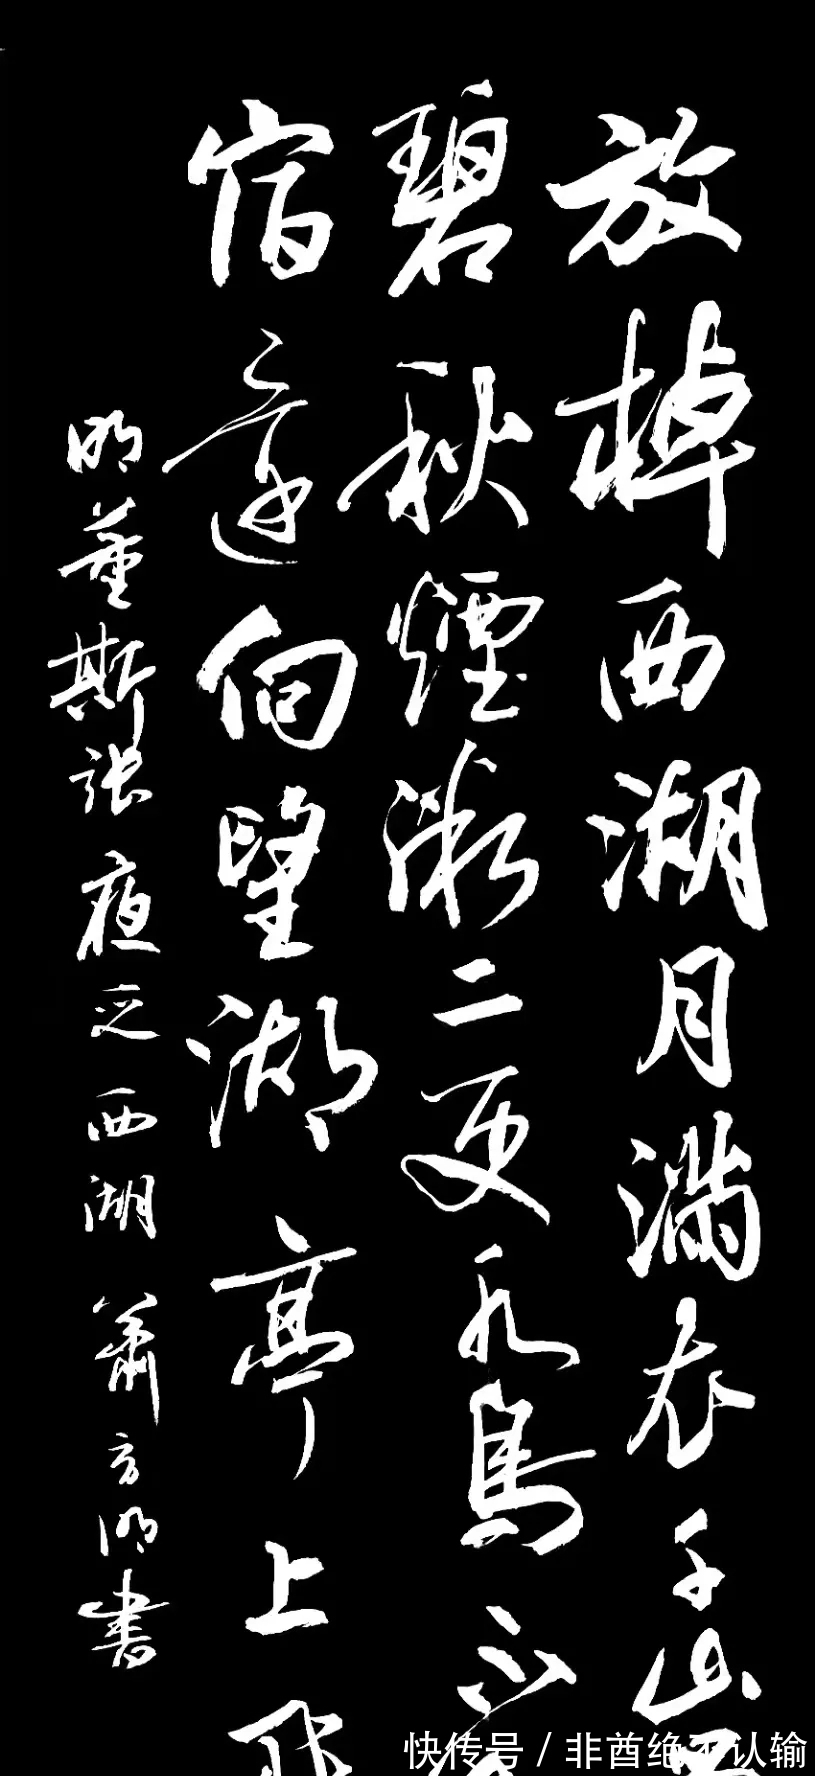 放棹西湖月满衣千山
碧秋烟微二更水鸟不
宿还向望湖亭上飞
明董斯张夜泛西湖 萧方明书
快传号 / 非酋绝不认输